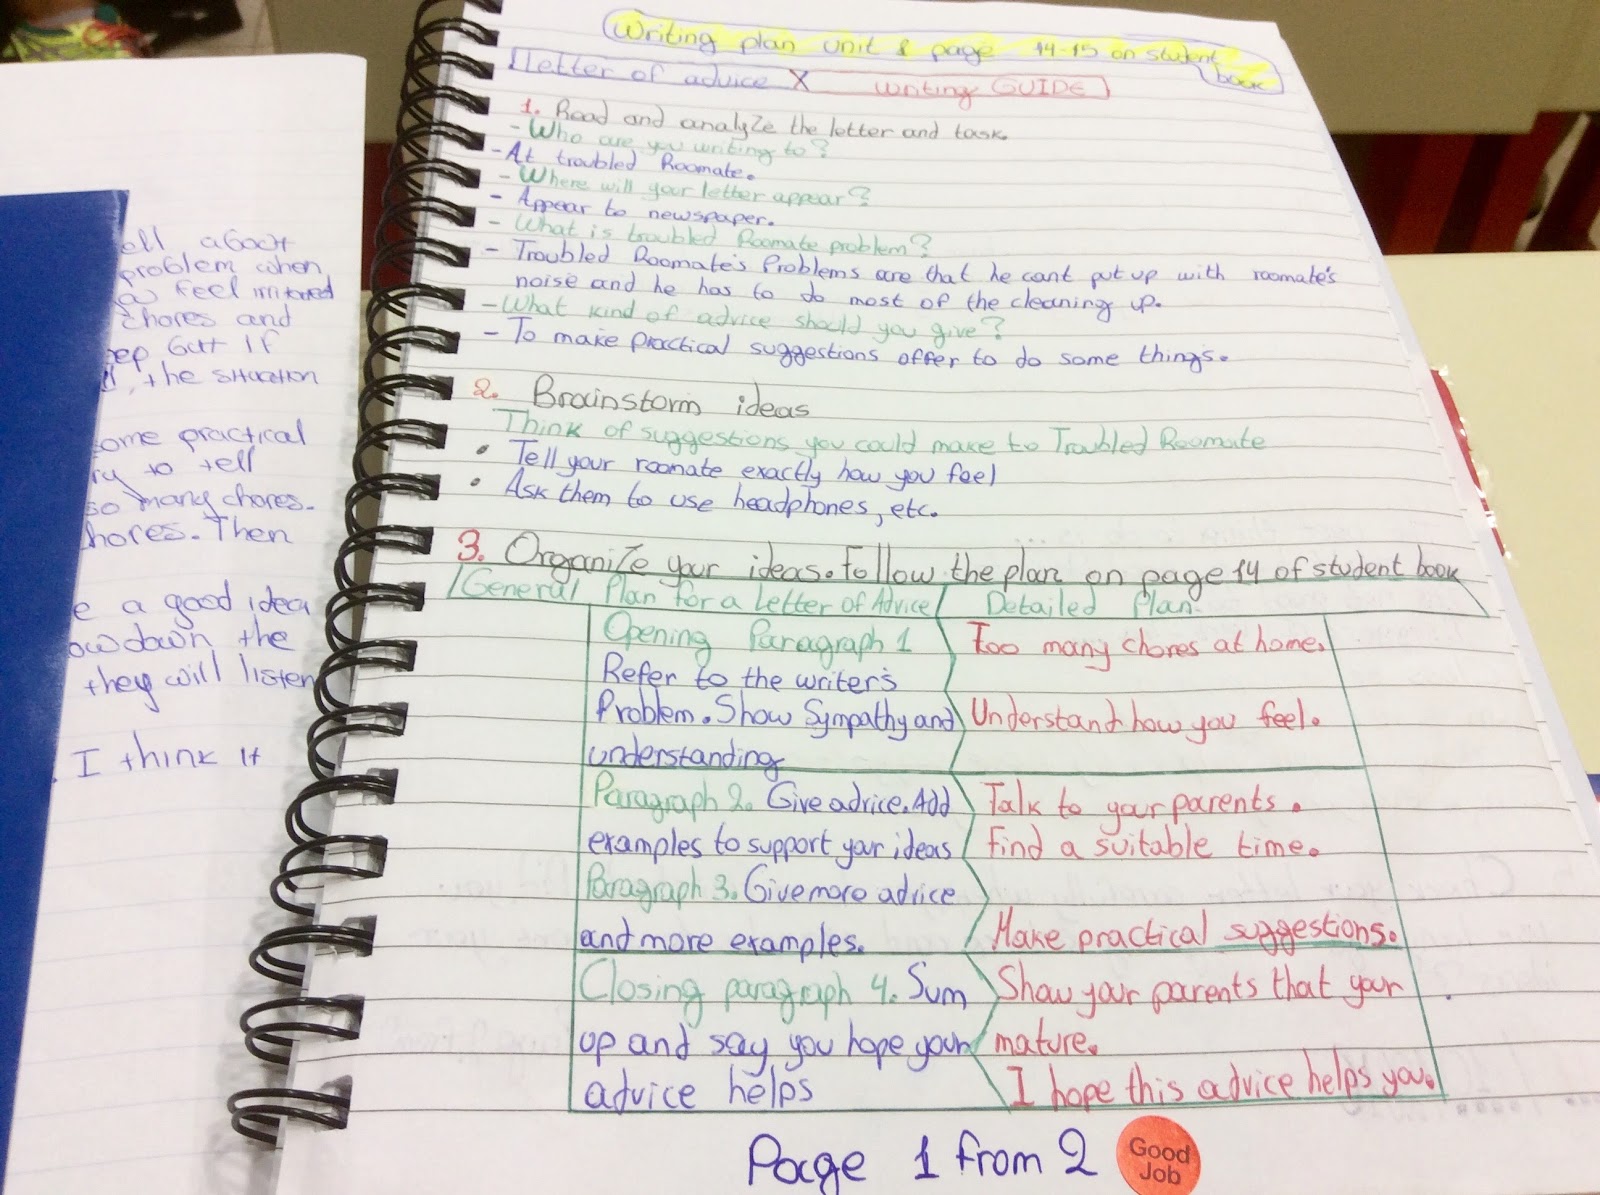 ell about
problem when
feel irritated
chores and
eep but if
, the situation
ome practical
ry to tell
so many chores.
hores. Then
e a good idea
ow down the
they will listen
. I think it
Writing plan unit 1 page 14-15 on student
book
letter of advice X writing GUIDE
1. Read and analyze the letter and task.
- Who are you writing to?
- At troubled Roomate.
- Where will your letter appear?
- Appear to newspaper.
- What is troubled Roomate problem?
- Troubled Roomate's Problems are that he cant put up with roomate's
noise and he has to do most of the cleaning up.
- What kind of advice should you give?
- To make practical suggestions offer to do some things.
2. Brainstorm ideas
Think of suggestions you could make to Troubled Roomate
• Tell your roomate exactly how you feel
• Ask them to use headphones, etc.
3. Organize your ideas. Follow the plan on page 14 of student book
General Plan for a Letter of Advice Detailed Plan.
Opening Paragraph 1
Refer to the writer's
Problem. Show Sympathy and
understanding
Too many chores at home.
Understand how you feel.
Paragraph 2. Give advice. Add
examples to support your ideas
Talk to your parents.
Find a suitable time.
Paragraph 3. Give more advice
and more examples.
Make practical suggestions.
Closing paragraph 4. Sum
up and say you hope your
advice helps
Show your parents that your
mature.
I hope this advice helps you.
Page 1 from 2
Good
Job